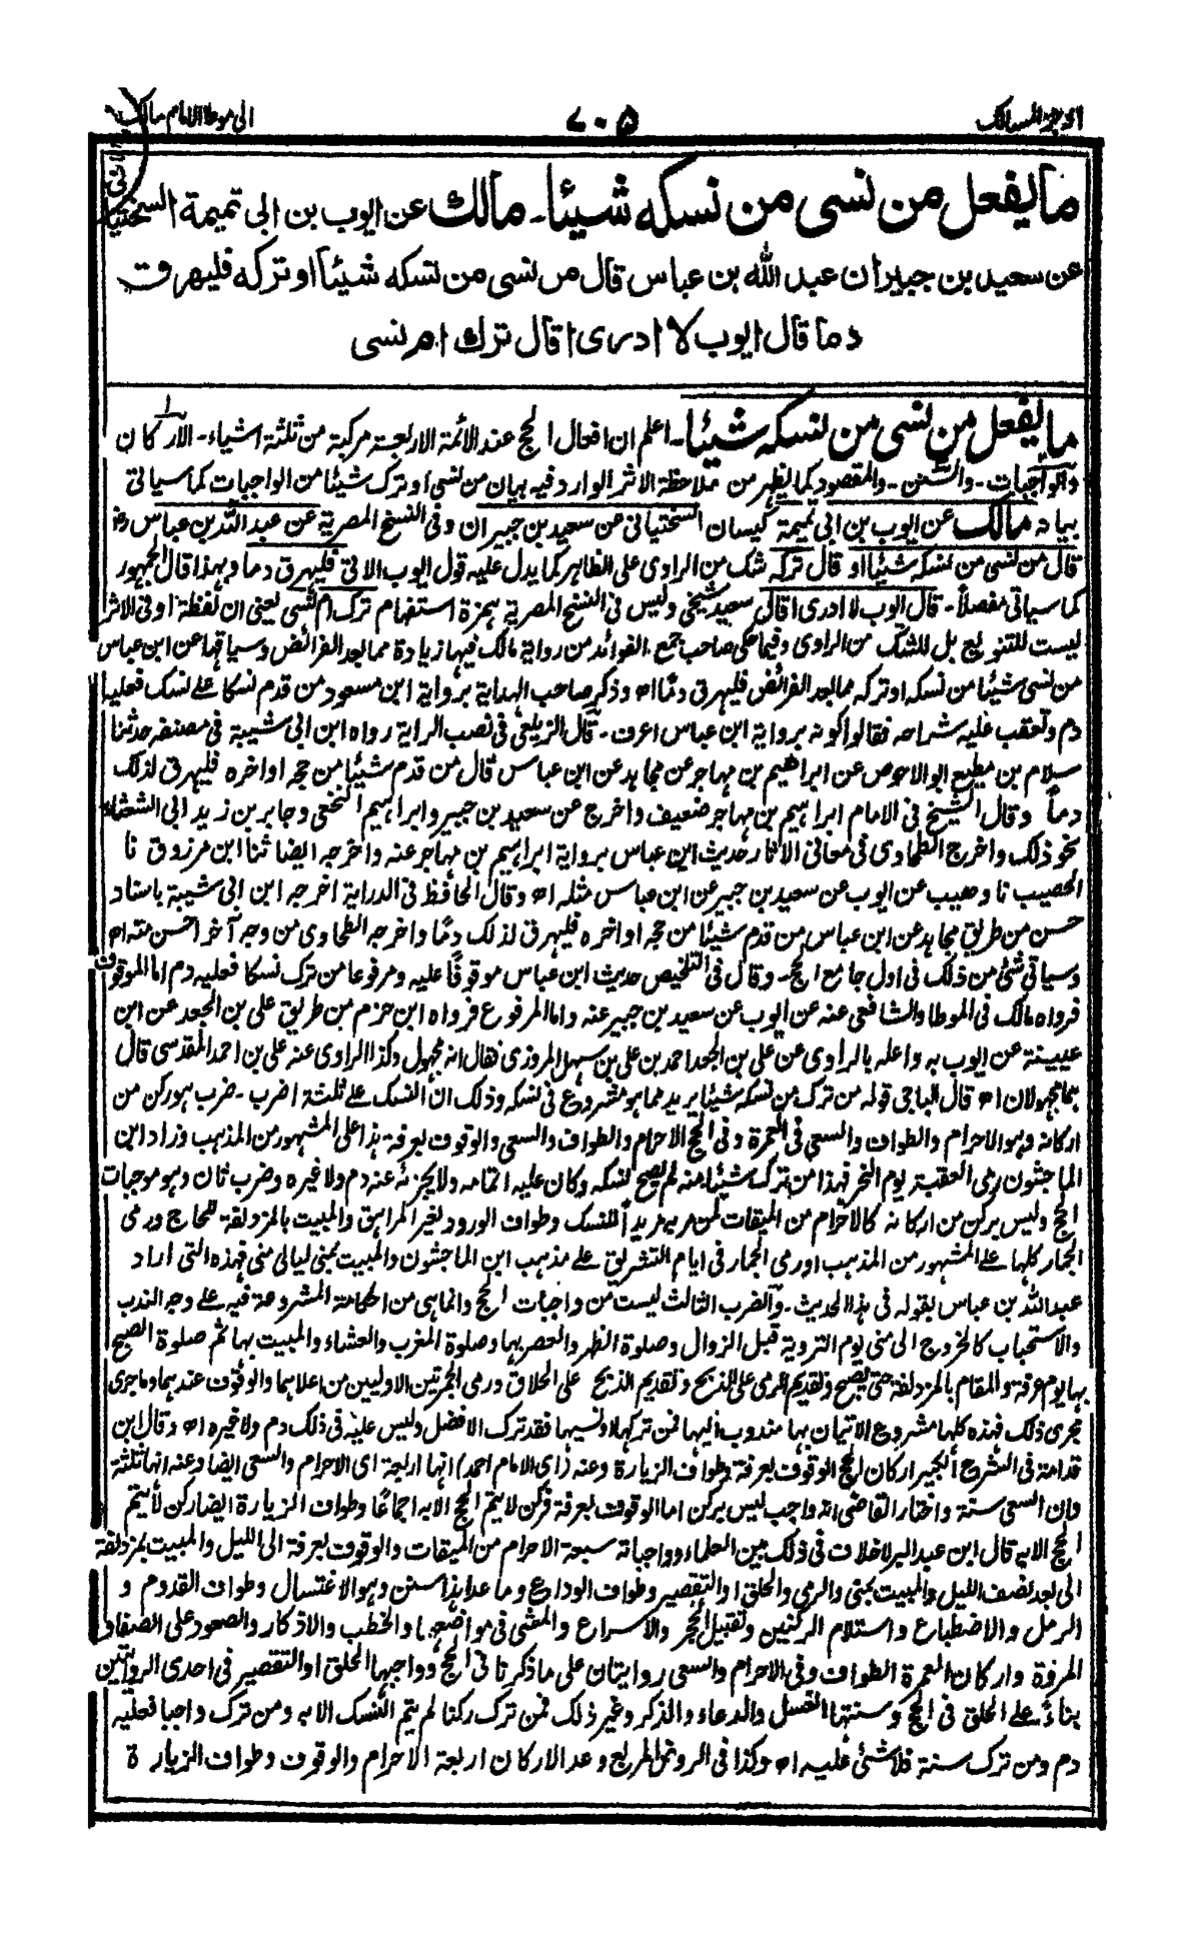 اوجز المسالك ۷۰۵ الى موطا الامام مالك
ما يفعل من نسى من نسكه شيئا ـ مالك عن ايوب بن ابى تميمة السختيانى
عن سعيد بن جبير ان عبد الله بن عباس قال من نسى من نسكه شيئا او تركه فليهرق
دما قال ايوب لا ادرى اقال ترك ام نسى
ما يفعل من نسى من نسكه شيئا ـ اعلم ان افعال الحج عند الائمة الاربعة مركبة من ثلثة اشياء ـ الاركان
والواجبات ـ والسنن ـ والمقصود كما يظهر من ملاحظة الاثر الوارد فيه بيان من نسى او ترك شيئا من الواجبات كما سياتى
بيانه مالك عن ايوب بن ابى تميمة كيسان السختيانى عن سعيد بن جبير ان وفى النسخ المصرية عن عبد الله بن عباس رض
قال من نسى من نسكه شيئا او قال تركه شك من الراوى على الظاهر كما يدل عليه قول ايوب الاتى فليهرق دما وبهذا قال الجمهور
كما سياتى مفصلا ـ قال ايوب لا ادرى اقال سعيد شيخى وليس فى النسخ المصرية بهمزة استفهام ترك ام نسى يعنى ان لفظة او فى الاثر
ليست للتنويع بل للشك من الراوى وفيما حكى صاحب جمع الفوائد من رواية مالك فيها زيادة مما بعد الفرائض وسياقها عن ابن عباس
من نسى شيئا من نسكه او تركه مما بعد الفرائض فليهرق دما اه وذكر صاحب الهداية برواية ابن مسعود من قدم نسكا على نسك فعليه
دم وتعقب عليه شراحه فقالوا كونه برواية ابن عباس اعرف ـ قال الزيلعى فى نصب الراية رواه ابن ابى شيبة فى مصنفه حدثنا
سلام بن مطيع ابو الاحوص عن ابراهيم بن مهاجر عن مجاهد عن ابن عباس قال من قدم شيئا من حجه او اخره فليهرق لذلك
دما وقال الشيخ فى الامام ابراهيم بن مهاجر ضعيف واخرج عن سعيد بن جبير وابراهيم النخعى وجابر بن زيد ابى الشعثاء
نحو ذلك واخرج الطحاوى فى معانى الاثار حديث ابن عباس برواية ابراهيم بن مهاجر عنه واخرجه ايضا ثنا ابن مرزوق نا
الخصيب نا وهيب عن ايوب عن سعيد بن جبير عن ابن عباس مثله اه وقال الحافظ فى الدراية اخرجه ابن ابى شيبة باسناد
حسن من طريق مجاهد عن ابن عباس من قدم شيئا من حجه او اخره فليهرق لذلك دما واخرجه الطحاوى من وجه آخر احسن منه اه
وسياتى شئ من ذلك فى اول جامع الحج ـ وقال فى التلخيص حديث ابن عباس موقوفا عليه ومرفوعا من ترك نسكا فعليه دم اما الموقوف
فرواه مالك فى الموطا والشافعى عنه عن ايوب عن سعيد بن جبير عنه واما المرفوع فرواه ابن حزم من طريق على بن الجعد عن ابن
عيينة عن ايوب به واعله بالراوى عن على بن الجعد احمد بن على بن سهل المروزى فقال انه مجهول وكذا الراوى عنه على بن احمد المقدسى قال
هما مجهولان اه قال الباجى قوله من ترك من نسكه شيئا يريد مما هو مشروع فى نسكه وذلك ان النسك على ثلثة اضرب ـ ضرب هو ركن من
اركانه وهو الاحرام والطواف والسعى فى العمرة وفى الحج الاحرام والطواف والسعى والوقوف بعرفة هذا على المشهور من المذهب وزاد ابن
الماجشون رمى العقبة يوم النحر فهذا من ترك شيئا منه لم يصح نسكه وكان عليه اتمامه ولا يجزئه عنه دم ولا غيره وضرب ثان وهو موجبات
الحج وليس بركن من اركانه كالاحرام من الميقات لمن مر به مريدا للنسك وطواف الورود لغير المراهق والمبيت بالمزدلفة للحاج ورمى
الجمار كلها على المشهور من المذهب او رمى الجمار فى ايام التشريق على مذهب ابن الماجشون والمبيت بمنى ليالى منى فهذه التى اراد
عبد الله بن عباس بقوله فى هذا الحديث ـ والضرب الثالث ليست من واجبات الحج وانما هى من احكامه المشروعة فيه على وجه الندب
والاستحباب كالخروج الى منى يوم التروية قبل الزوال وصلوة الظهر والعصر بها وصلوة المغرب والعشاء والمبيت بها ثم صلوة الصبح
بها يوم عرفة والمقام بالمزدلفة حتى يصبح وتقديم الرمى على الذبح وتقديم الذبح على الحلاق ورمى الجمرتين الاوليين من اعلاهما والوقوف عندهما وما جرى
مجرى ذلك فهذه كلها مشروع الاتيان بها مندوب اليها فمن تركها او نسيها فقد ترك الافضل وليس عليه فى ذلك دم ولا غيره اه وقال ابن
قدامة فى الشرح الكبير اركان الحج الوقوف بعرفة وطواف الزيارة وعنه (اى الامام احمد) انها اربعة اى الاحرام والسعى ايضا وعنه انها ثلثة
وان السعى سنة واختار القاضى انه واجب ليس بركن اما الوقوف بعرفة فركن لا يتم الحج الا به اجماعا وطواف الزيارة ايضا ركن لا يتم
الحج الا به قال ابن عبد البر لا خلاف فى ذلك بين العلماء وواجباته سبعة الاحرام من الميقات والوقوف بعرفة الى الليل والمبيت بمزدلفة
الى بعد نصف الليل والمبيت بمنى والرمى والحلق او التقصير وطواف الوداع وما عدا هذا سنن وهو الاغتسال وطواف القدوم و
الرمل والاضطباع واستلام الركنين وتقبيل الحجر والاسراع والمشى فى مواضعها والخطب والاذكار والصعود على الصفا و
المروة واركان العمرة الطواف وفى الاحرام والسعى روايتان على ما ذكرنا فى الحج وواجبها الحلق او التقصير فى احدى الروايتين
بناءً على الحلق فى الحج وسنتها الغسل والدعاء والذكر وغير ذلك فمن ترك ركنا لم يتم النسك الا به ومن ترك واجبا فعليه
دم ومن ترك سنة فلا شئ عليه اه وكذا فى الروض المربع وعد الاركان اربعة الاحرام والوقوف وطواف الزيارة